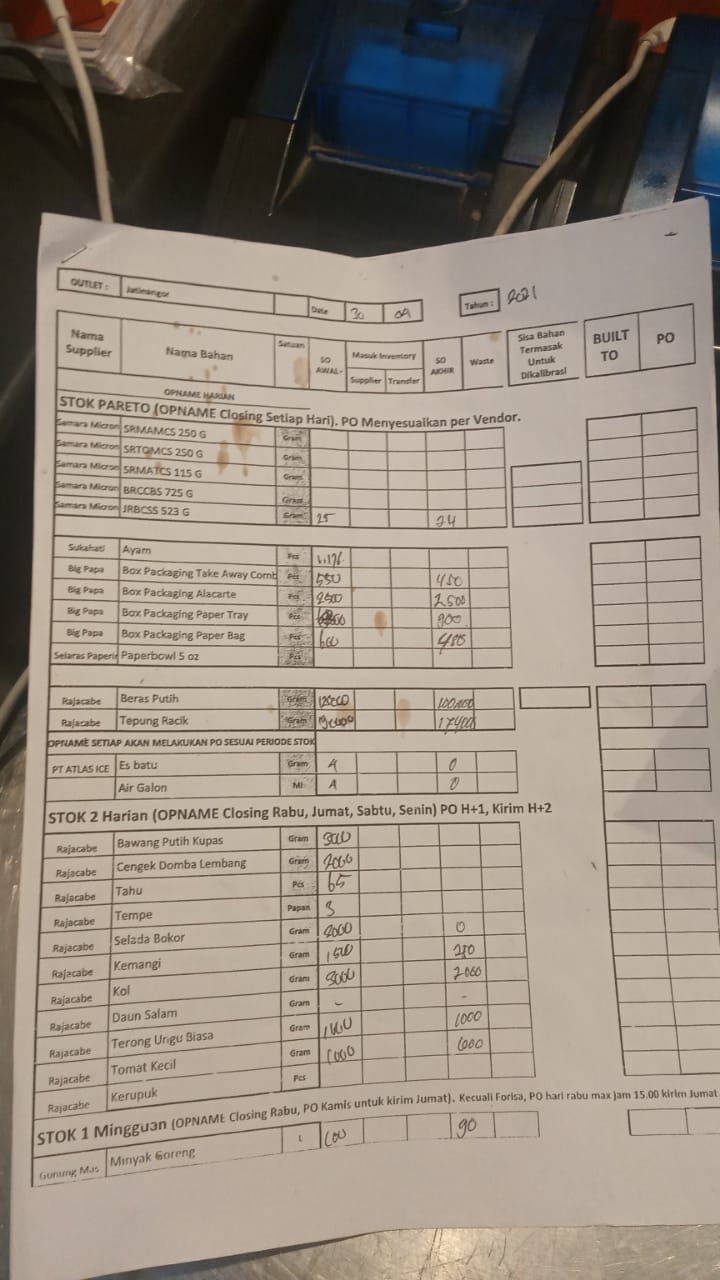 OUTLET : Jatinangor Date 30 09 Tahun : 2021
Nama Supplier Nama Bahan Satuan SO AWAL- Masuk Inventory Supplier Transfer SO AKHIR Waste Sisa Bahan Termasak Untuk Dikalibrasi BUILT TO PO
OPNAME HARIAN
STOK PARETO (OPNAME Closing Setiap Hari). PO Menyesuaikan per Vendor.
Samara Micron SRMAMCS 250 G Gram
Samara Micron SRTOMCS 250 G Gram
Samara Micron SRMATCS 115 G Gram
Samara Micron BRCCBS 725 G Gram
Samara Micron JRBCSS 523 G Gram 25 24
Sukahati Ayam Pcs 1.176
Big Papa Box Packaging Take Away Comb Pcs 550 450
Big Papa Box Packaging Alacarte Pcs 2500 2500
Big Papa Box Packaging Paper Tray Pcs 900
Big Papa Box Packaging Paper Bag Pcs 600
Selaras Paperin Paperbowl 5 oz Pcs
Rajacabe Beras Putih Gram 100.000
Rajacabe Tepung Racik Gram 17400
OPNAME SETIAP AKAN MELAKUKAN PO SESUAI PERIODE STOK
PT ATLAS ICE Es batu Gram 4 0
Air Galon Ml 0
STOK 2 Harian (OPNAME Closing Rabu, Jumat, Sabtu, Senin) PO H+1, Kirim H+2
Rajacabe Bawang Putih Kupas Gram 3000
Rajacabe Cengek Domba Lembang Gram 2000
Rajacabe Tahu Pcs 65
Rajacabe Tempe Papan 3
Rajacabe Selada Bokor Gram 2000 0
Rajacabe Kemangi Gram 1500 250
Rajacabe Kol Gram 3000 2000
Rajacabe Daun Salam Gram - -
Rajacabe Terong Ungu Biasa Gram 1000
Rajacabe Tomat Kecil Gram 1000 1000
Rajacabe Kerupuk Pcs
STOK 1 Mingguan (OPNAME Closing Rabu, PO Kamis untuk kirim Jumat). Kecuali Forisa, PO hari rabu max jam 15.00 kirim Jumat
Gunung Mas Minyak Goreng L 100 90